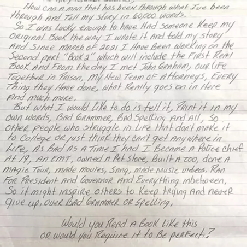 How can a man that has been through what I've been
through and Tell my Story in 60,000 words.
So I was lucky enough to have had someone Keep my
Original Book the way I wrote it and told my story
And Since march of 2021 I Have Been working on the
Second part "Book 2" which will include the First Part
Book and From the day I met John Graham, our Life
Together in Prison, My New Team of Attorneys, Every
Thing they Have done, what really goes on in Here
And much more.
But what I would Like to do is tell it, Print it in my
own words, Bad Grammer, Bad Spelling And All, So
other People who struggle in Life that don't make it
to College or Just think they Can't get anywhere in
Life, As Bad as a Time I had I Became a Police Chief
AT 19, An EMT, owned a Pet Store, Built a Zoo, done a
Magic Tour, made movies, Song, made music videos Ran
For President And Governor And Everything inbetween,
So it might inspire others to Keep Trying And Never
Give up, over Bad Grammer or Spelling.
Would you Read a Book Like this
or would you Require it to Be perfect?